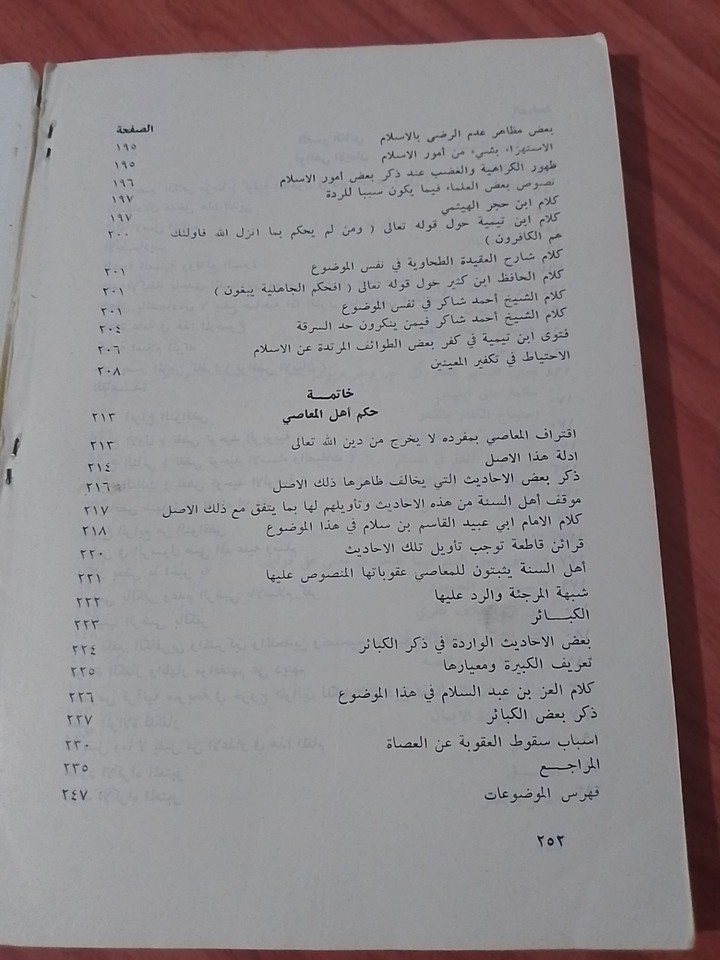 الصفحة
بعض مظاهر عدم الرضى بالاسلام ١٩٥
الاستهزاء بشيء من أمور الاسلام ١٩٥
ظهور الكراهية والغضب عند ذكر بعض أمور الاسلام ١٩٦
نصوص بعض العلماء فيما يكون سببا للردة ١٩٧
كلام ابن حجر الهيثمي ١٩٧
كلام ابن تيمية حول قوله تعالى ( ومن لم يحكم بما انزل الله فاولئك ٢٠٠
هم الكافرون )
كلام شارح العقيدة الطحاوية في نفس الموضوع ٢٠١
كلام الحافظ ابن كثير حول قوله تعالى ( افحكم الجاهلية يبغون ) ٢٠١
كلام الشيخ أحمد شاكر في نفس الموضوع ٢٠١
كلام الشيخ أحمد شاكر فيمن ينكرون حد السرقة ٢٠٤
فتوى ابن تيمية في كفر بعض الطوائف المرتدة عن الاسلام ٢٠٦
الاحتياط في تكفير المعينين ٢٠٨
خاتمـــة
حكم أهل المعاصي ٢١٣
اقتراف المعاصي بمفرده لا يخرج من دين الله تعالى ٢١٣
ادلة هذا الاصل ٢١٤
ذكر بعض الاحاديث التي يخالف ظاهرها ذلك الاصل ٢١٦
موقف أهل السنة من هذه الاحاديث وتأويلهم لها بما يتفق مع ذلك الاصل ٢١٧
كلام الامام ابي عبيد القاسم بن سلام في هذا الموضوع ٢١٨
قرائن قاطعة توجب تأويل تلك الاحاديث ٢٢٠
أهل السنة يثبتون للمعاصي عقوباتها المنصوص عليها ٢٢١
شبهة المرجئة والرد عليها ٢٢٢
الكبـــائر ٢٢٣
بعض الاحاديث الواردة في ذكر الكبائر ٢٢٤
تعريف الكبيرة ومعيارها ٢٢٥
كلام العز بن عبد السلام في هذا الموضوع ٢٢٦
ذكر بعض الكبائر ٢٢٧
اسباب سقوط العقوبة عن العصاة ٢٣٠
المراجـــع ٢٣٥
فهرس الموضوعات ٢٤٧
٢٥٢